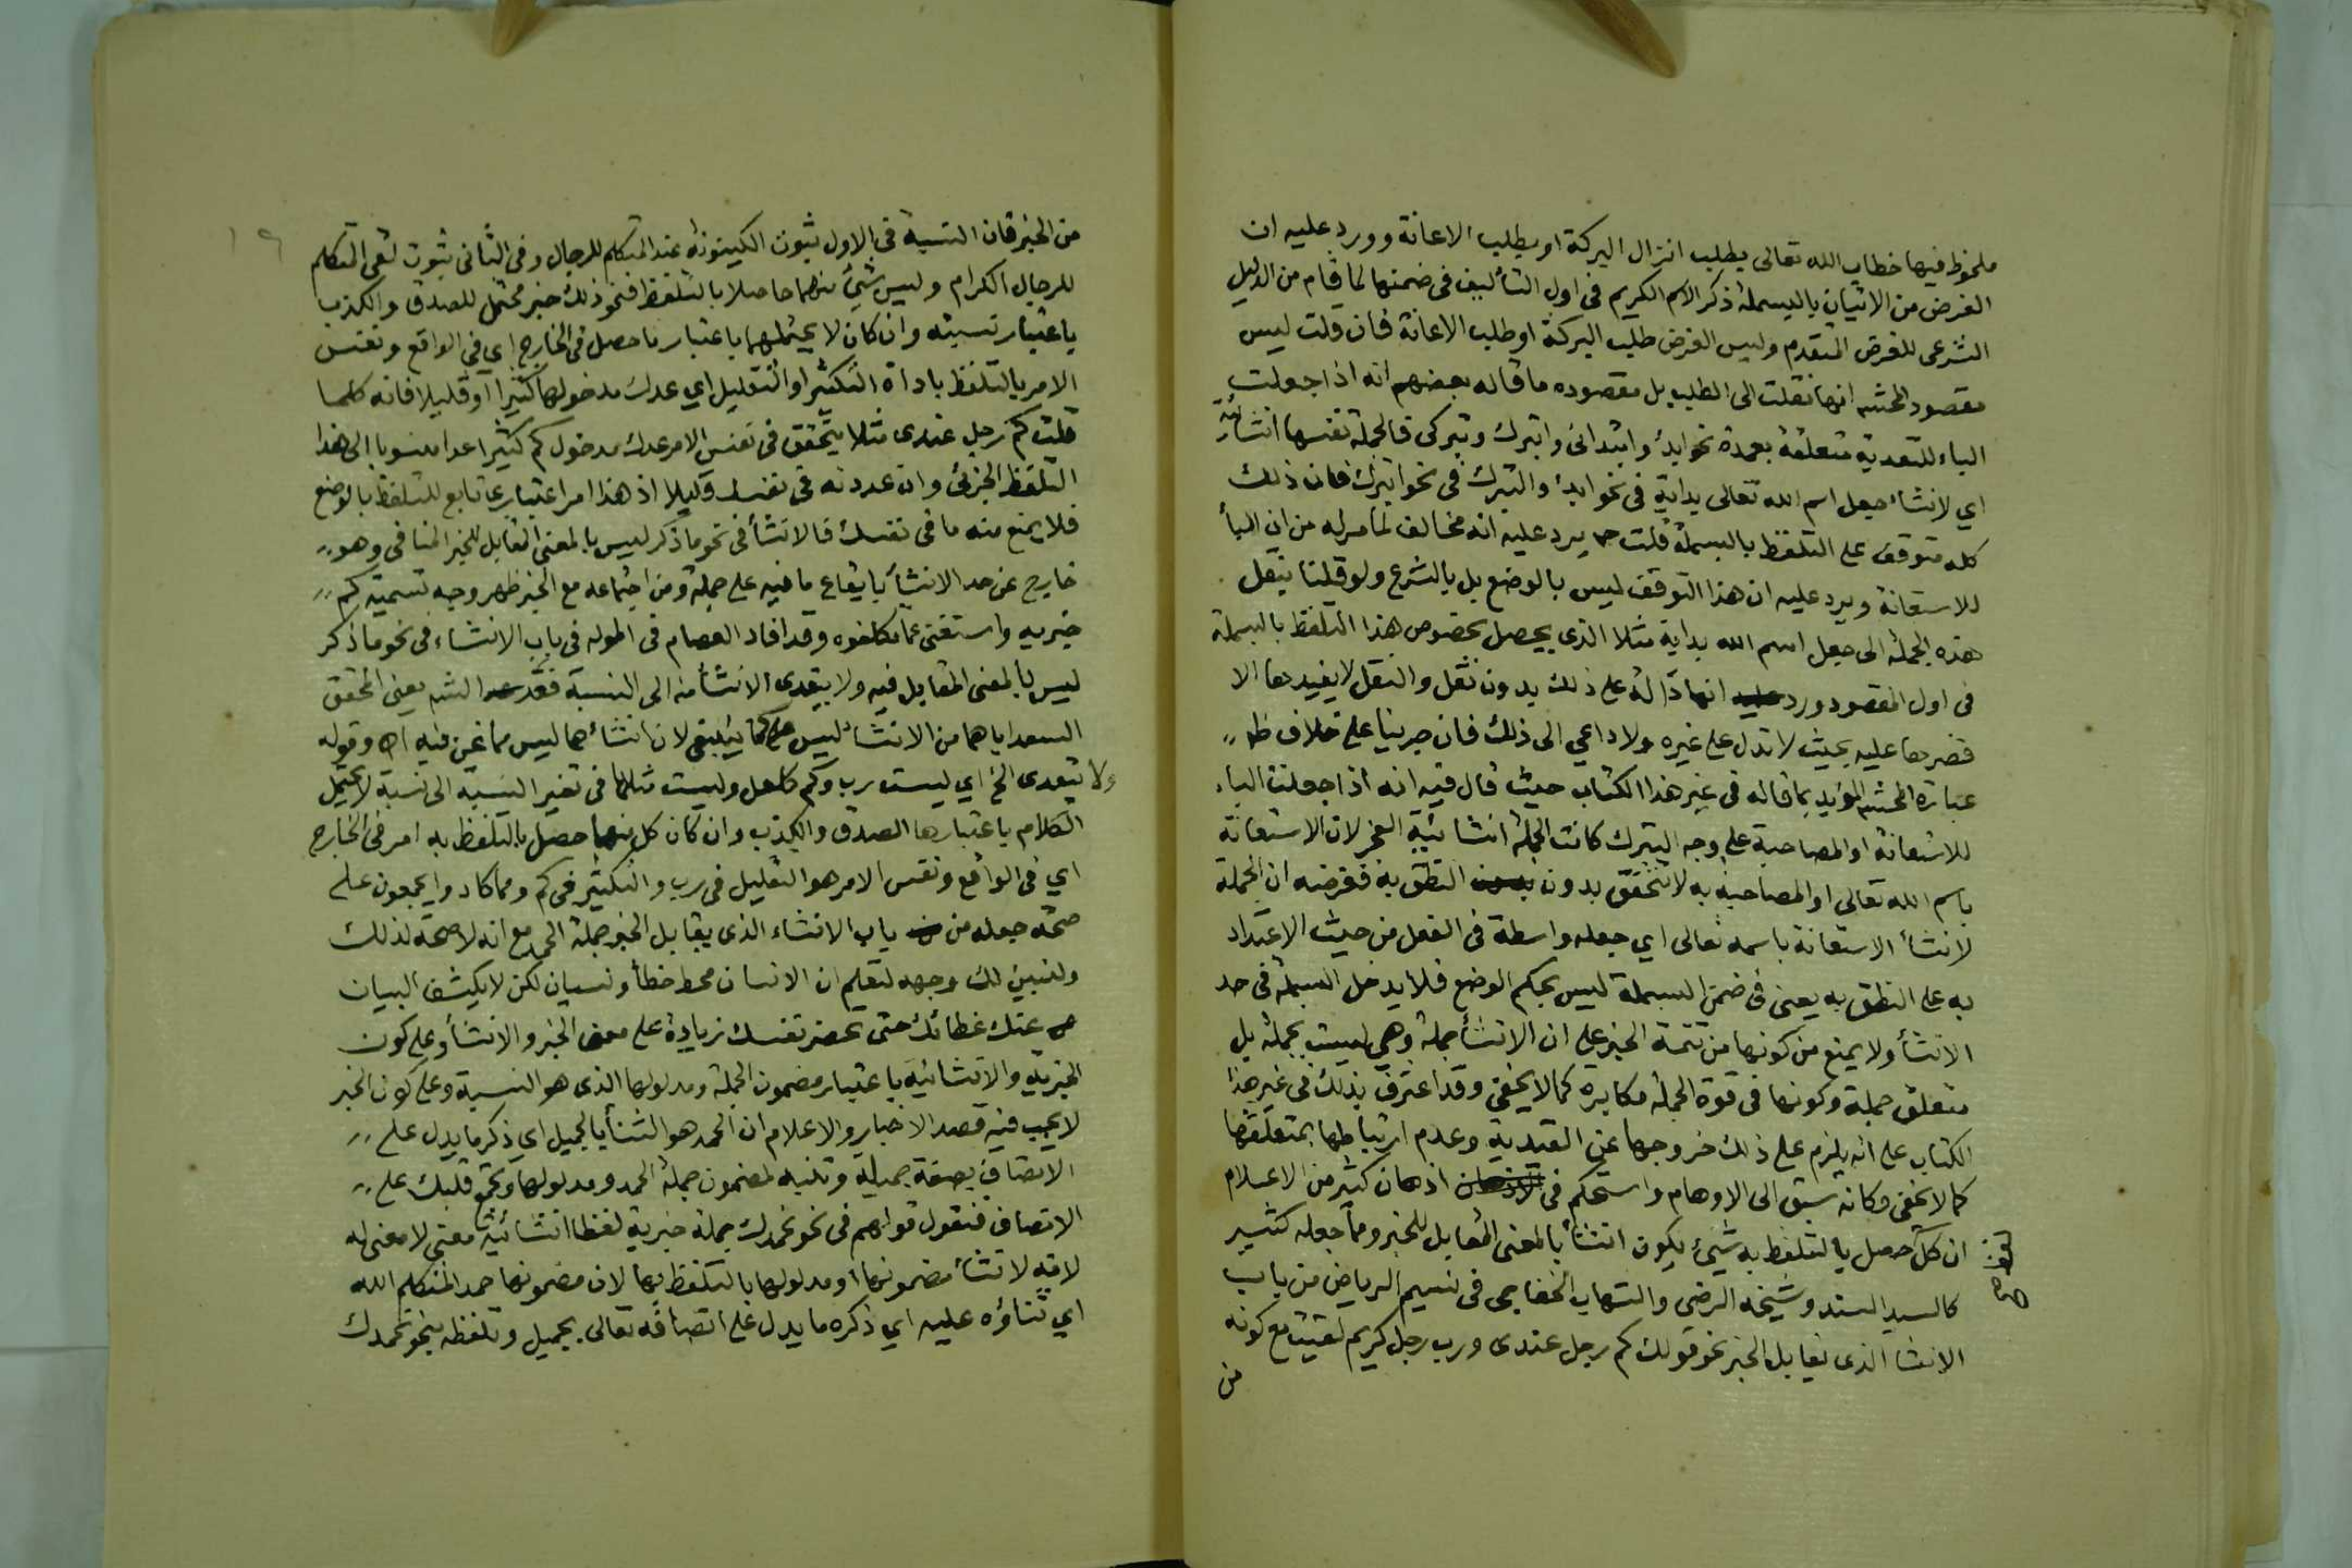 ملحوظ فيها خطاب الله تعالى بطلب انزال البركة او بطلب الاعانة وورد عليه ان
الغرض من الاتيان بالبسملة ذكر الاسم الكريم في اول التأليف في ضمنها لما قام من الدليل
الشرعى للغرض المتقدم وليس الغرض طلب البركة او طلب الاعانة فان قلت ليس
مقصود المحشى انها نقلت الى الطلب بل مقصوده ما قاله بعضهم انه اذا جعلت
الباء للتعدية متعلقة بعمدة نحو ابدئ وابتدائى واتبرك وتبركى فالجملة نفسها انشائية
اي لانشاء جعل اسم الله تعالى بداية في نحو ابدئ والتبرك في نحو اتبرك فان ذلك
كله متوقف على التلفظ بالبسملة قلت ح يرد عليه انه مخالف لما مر له من ان الباء
للاستعانة ويرد عليه ان هذا التوقف ليس بالوضع بل بالشرع ولو قلنا بنقل
هذه الجملة الى جعل اسم الله بداية مثلا الذى يحصل بخصوص هذا التلفظ بالبسملة
فى اول المقصود ورد انها دالة على ذلك بدون نقل والنقل لا يفيدها الا
قصرها عليه بحيث لا تدل على غيره ولا داعي الى ذلك فان جرينا على خلاف ظ
عبارة المحشى المؤيد بما قاله في غير هذا الكتاب حيث قال فيه انه اذا جعلت الباء
للاستعانة او المصاحبة على وجه التبرك كانت الجملة انشائية العجز لان الاستعانة
باسم الله تعالى او المصاحبة به لا تتحقق بدون النطق به فغرضه ان الجملة
لانشاء الاستعانة باسمه تعالى اي جعله واسطة في الفعل من حيث الاعتداد
به على النطق به يعنى في ضمن البسملة ليس بحكم الوضع فلا يدخل البسملة في حد
الانشاء ولا يمنع من كونها من تتمة الخبر على ان الانشاء جملة وهي ليست بجملة بل
متعلق جملة وكونها في قوة الجملة مكابرة كما لا يخفى وقد اعترف بذلك في غير هذا
الكتاب على انه يلزم على ذلك خروجها عن القيدية وعدم ارتباطها بمتعلقها
كما لا يخفى وكانه سبق الى الاوهام واستحكم في اذهان كثير من الاعلام
ان كل حصل بالتلفظ به شيئ يكون انشاء بالمعنى المقابل للخبر ومما جعله كثير
كالسيد السند وشيخه الرضي والشهاب الخفاجى في نسيم الرياض من باب
الانشا الذى يقابل الخبر نحو قولك كم رجل عندى ورب رجل كريم لقيت مع كونه
من
من الخبر فان النسبة في الاول ثبوت الكينونة عند المتكلم للرجال وفي الثانى ثبوت لقى المتكلم
للرجال الكرام وليس شيئ منهما حاصلا بالتلفظ فنحو ذلك خبر محتمل للصدق والكذب
باعتبار نسبته وان كان لا يحتملهما باعتبار ما حصل في الخارج اي في الواقع ونفس
الامر بالتلفظ باداة التكثير او التقليل اي عدك مدخولها كثيرا او قليلا فانه كلما
قلت كم رجل عندى مثلا يتحقق في نفس الامر عدك مدخول كم كثيرا عدا منسوبا الى هذا
التلفظ الجزئى وان عددته في نفسك قليلا اذ هذا امر اعتبارى تابع للتلفظ بالوضع
فلا يمنع منه ما في نفسك فالانشاء في نحو ما ذكر ليس بالمعنى المقابل للخبر المنافى وهو
خارج عن حد الانشاء بايقاع ما فيه على جملة ومن اجتماعه مع الخبر ظهر وجه تسمية كم
خبرية واستغنى عما تكلفوه وقد افاد العصام في اطوله في باب الانشاء في نحو ما ذكر
ليس بالمعنى المقابل فيه ولا يتعدى الانشاء منه الى النسبة فعد الش يعنى المحقق
السعد اياهما من الانشاء ليس على ما ينبغى لان انشاءهما ليس مما نحن فيه اه وقوله
ولا يتعدى الخ اي ليست رب وكم كلعل وليست مثلها في تغير النسبة الى نسبة لا يحتمل
الكلام باعتبارها الصدق والكذب وان كان كل منهما حصل بالتلفظ به امر في الخارج
اي في الواقع ونفس الامر هو التقليل في رب والتكثير في كم ومما كادوا يجمعون على
صحة جعله من باب الانشاء الذى يقابل الخبر جملة الحمد مع انه لا صحة لذلك
ولنبين لك وجهه لتعلم ان الانسان محط خطأ ونسيان لكن لا يكشف البيان
عنك غطائك حتى تحضر نفسك زيادة على معنى الخبر والانشاء وعلى كون
الخبرية والانشائية باعتبار مضمون الجملة ومدلولها الذى هو النسبة وعلى كون الخبر
لا يجب فيه قصد الاخبار والاعلام ان الحمد هو الثناء بالجميل اي ذكر ما يدل على
الاتصاف بصفة جميلة وتنبه لمضمون جملة الحمد ومدلولها وتجمع قلبك على
الاتصاف فنقول قولهم في نحو نحمدك جملة خبرية لفظا انشائية معنى لا معنى له
لانه لانشاء مضمونها او مدلولها بالتلفظ بها لان مضمونها حمد المتكلم الله
اي ثناؤه عليه اي ذكره ما يدل على اتصافه تعالى بجميل وتلفظه بنحو نحمدك